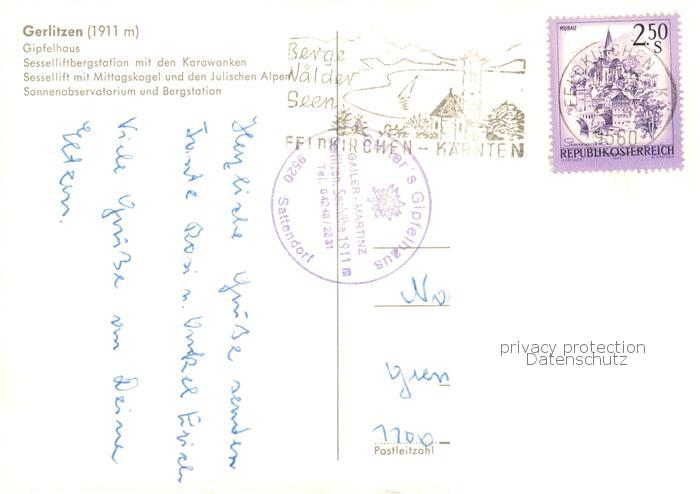 Gerlitzen (1911 m)
Gipfelhaus
Sesselliftbergstation mit den Karawanken
Sessellift mit Mittagskogel und den Julischen Alpen
Sonnenobservatorium und Bergstation
Berge
Wälder
Seen
FELDKIRCHEN - KÄRNTEN
MURAU
2.50
S
REPUBLIK ÖSTERREICH
FELDKIRCHEN
9560
's Gipfelhaus
GAILER-MARTINZ
Seehöhe 1911 m
Tel. 0 42 48 / 22 81
9520 Sattendorf
Herzliche Grüße senden
Tante Rosi u. Onkel Erich
Viele Grüße an Deine
Eltern.
1100
Postleitzahl
privacy protection
Datenschutz